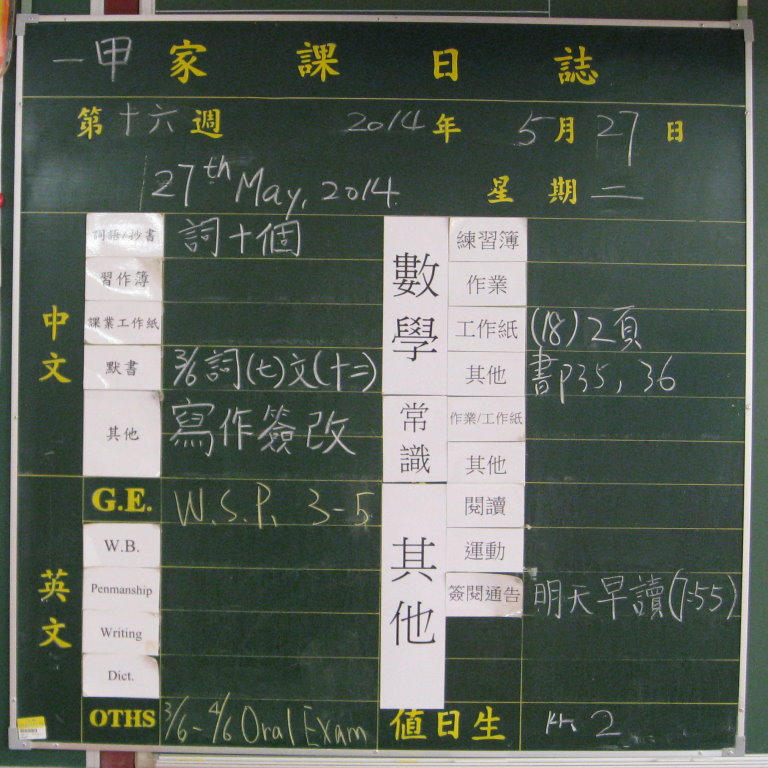 一甲 家 課 日 誌
第十六週 2014年 5月27日
27th May, 2014 星期二
中文
詞語/抄書 詞十個
習作簿
課業工作紙
默書 3/6詞(七)文(十二)
其他 寫作簽改
英文
G.E. W.S.P. 3-5
W.B.
Penmanship
Writing
Dict.
OTHS 3/6-4/6 Oral Exam
數學
練習簿
作業
工作紙 (18)2頁
其他 書P35, 36
常識
作業/工作紙
其他
其他
閱讀
運動
簽閱通告 明天早讀(7:55)
值日生 2